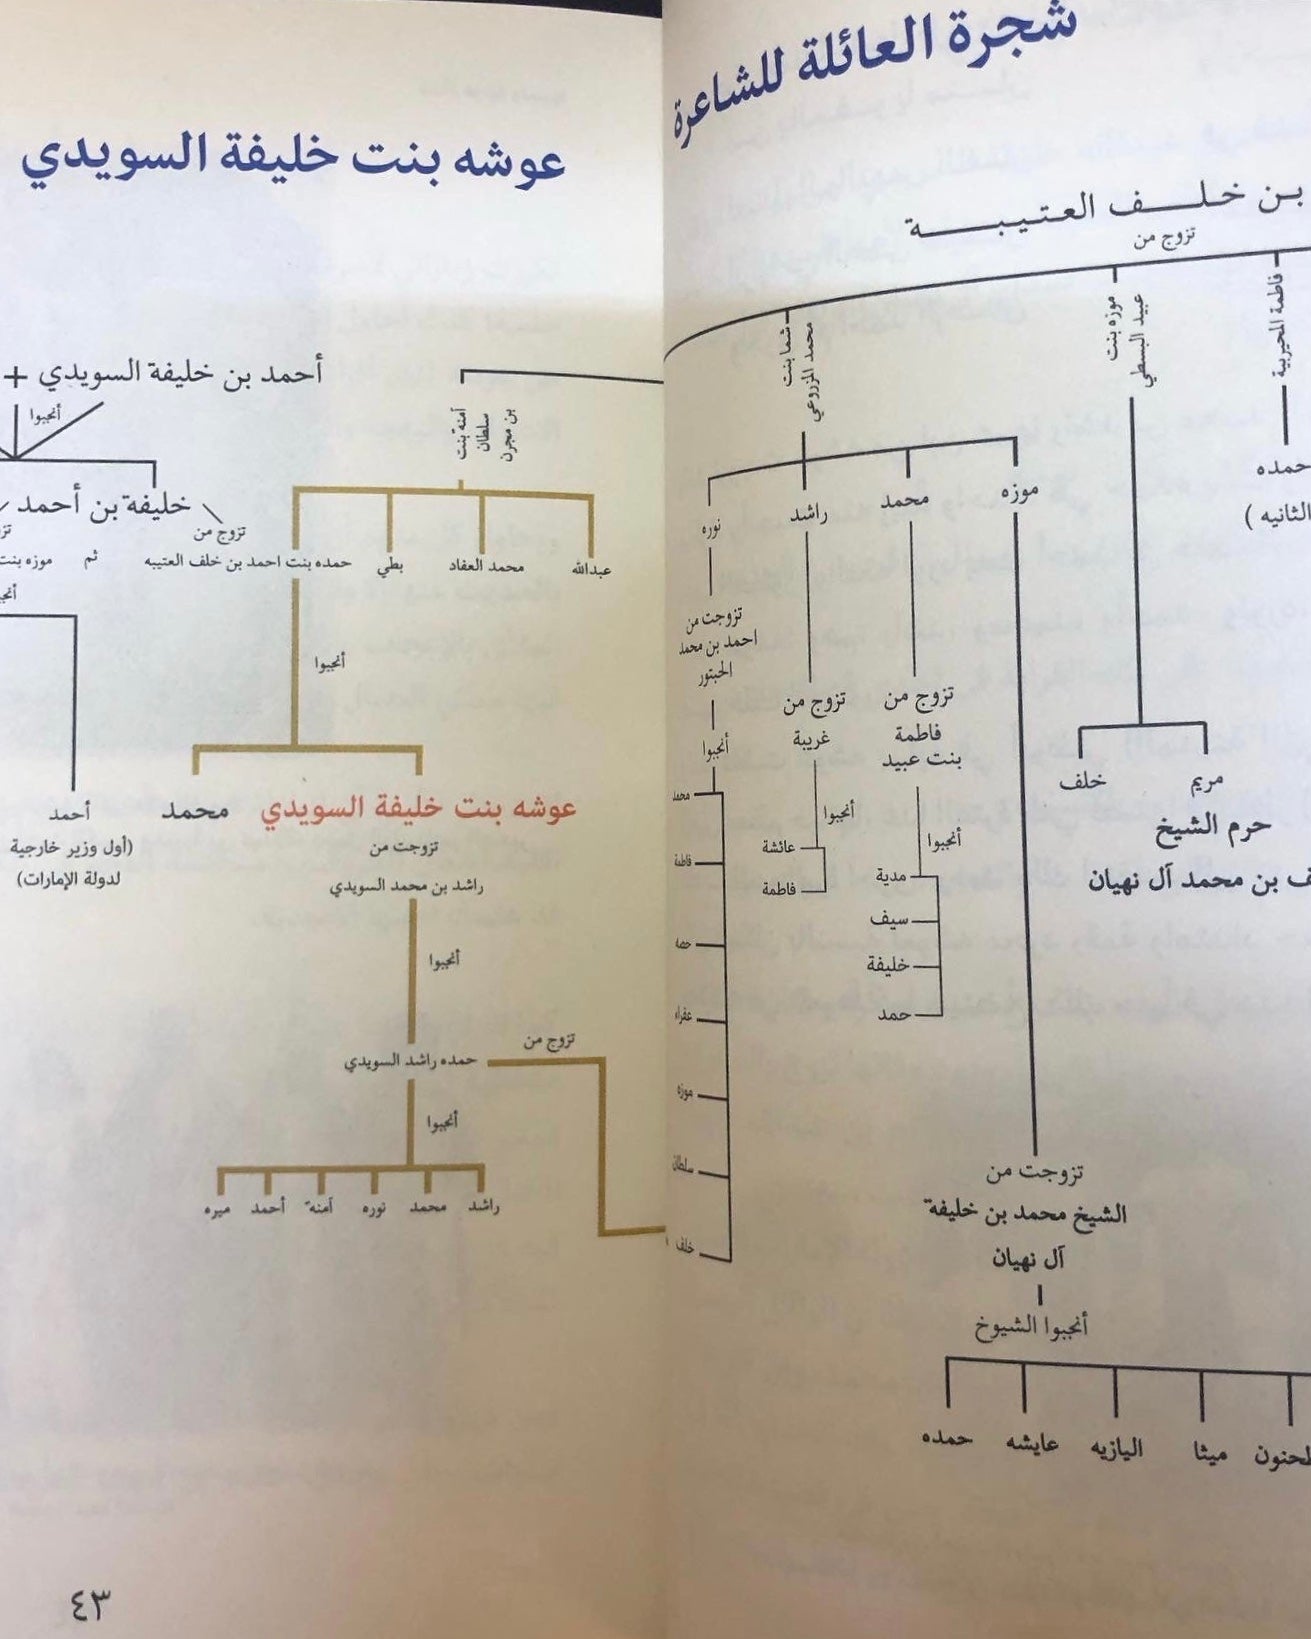 شجرة العائلة للشاعرة
عوشه بنت خليفة السويدي
بن خلف العتيبة
تزوج من
فاطمة المحيربية
حمده
الثانيه )
موزه بنت
عبيد البسطي
مريم
خلف
حرم الشيخ
بن محمد آل نهيان
شما بنت
محمد المزروعي
موزه
محمد
راشد
نوره
تزوجت من
الشيخ محمد بن خليفة
آل نهيان
أنجبوا الشيوخ
ميثا
اليازيه
عايشه
حمده
تزوج من
فاطمة
بنت عبيد
أنجبوا
مدية
سيف
خليفة
حمد
تزوج من
غريبة
أنجبوا
عائشة
فاطمة
تزوجت من
احمد بن محمد
الحبتور
أنجبوا
محمد
فاطمة
حصه
عفراء
موزه
سلطان
خلف
آمنة بنت
سلطان
بن مجرن
عبدالله
محمد العفاد
بطي
حمده بنت احمد بن خلف العتيبه
أحمد بن خليفة السويدي +
أنجبوا
خليفة بن أحمد
تزوج من
ثم
موزه بنت
أنجبوا
عوشه بنت خليفة السويدي
محمد
أحمد
(أول وزير خارجية
لدولة الإمارات)
تزوجت من
راشد بن محمد السويدي
أنجبوا
حمده راشد السويدي
تزوج من
أنجبوا
راشد
محمد
نوره
آمنة
أحمد
ميره
٤٣